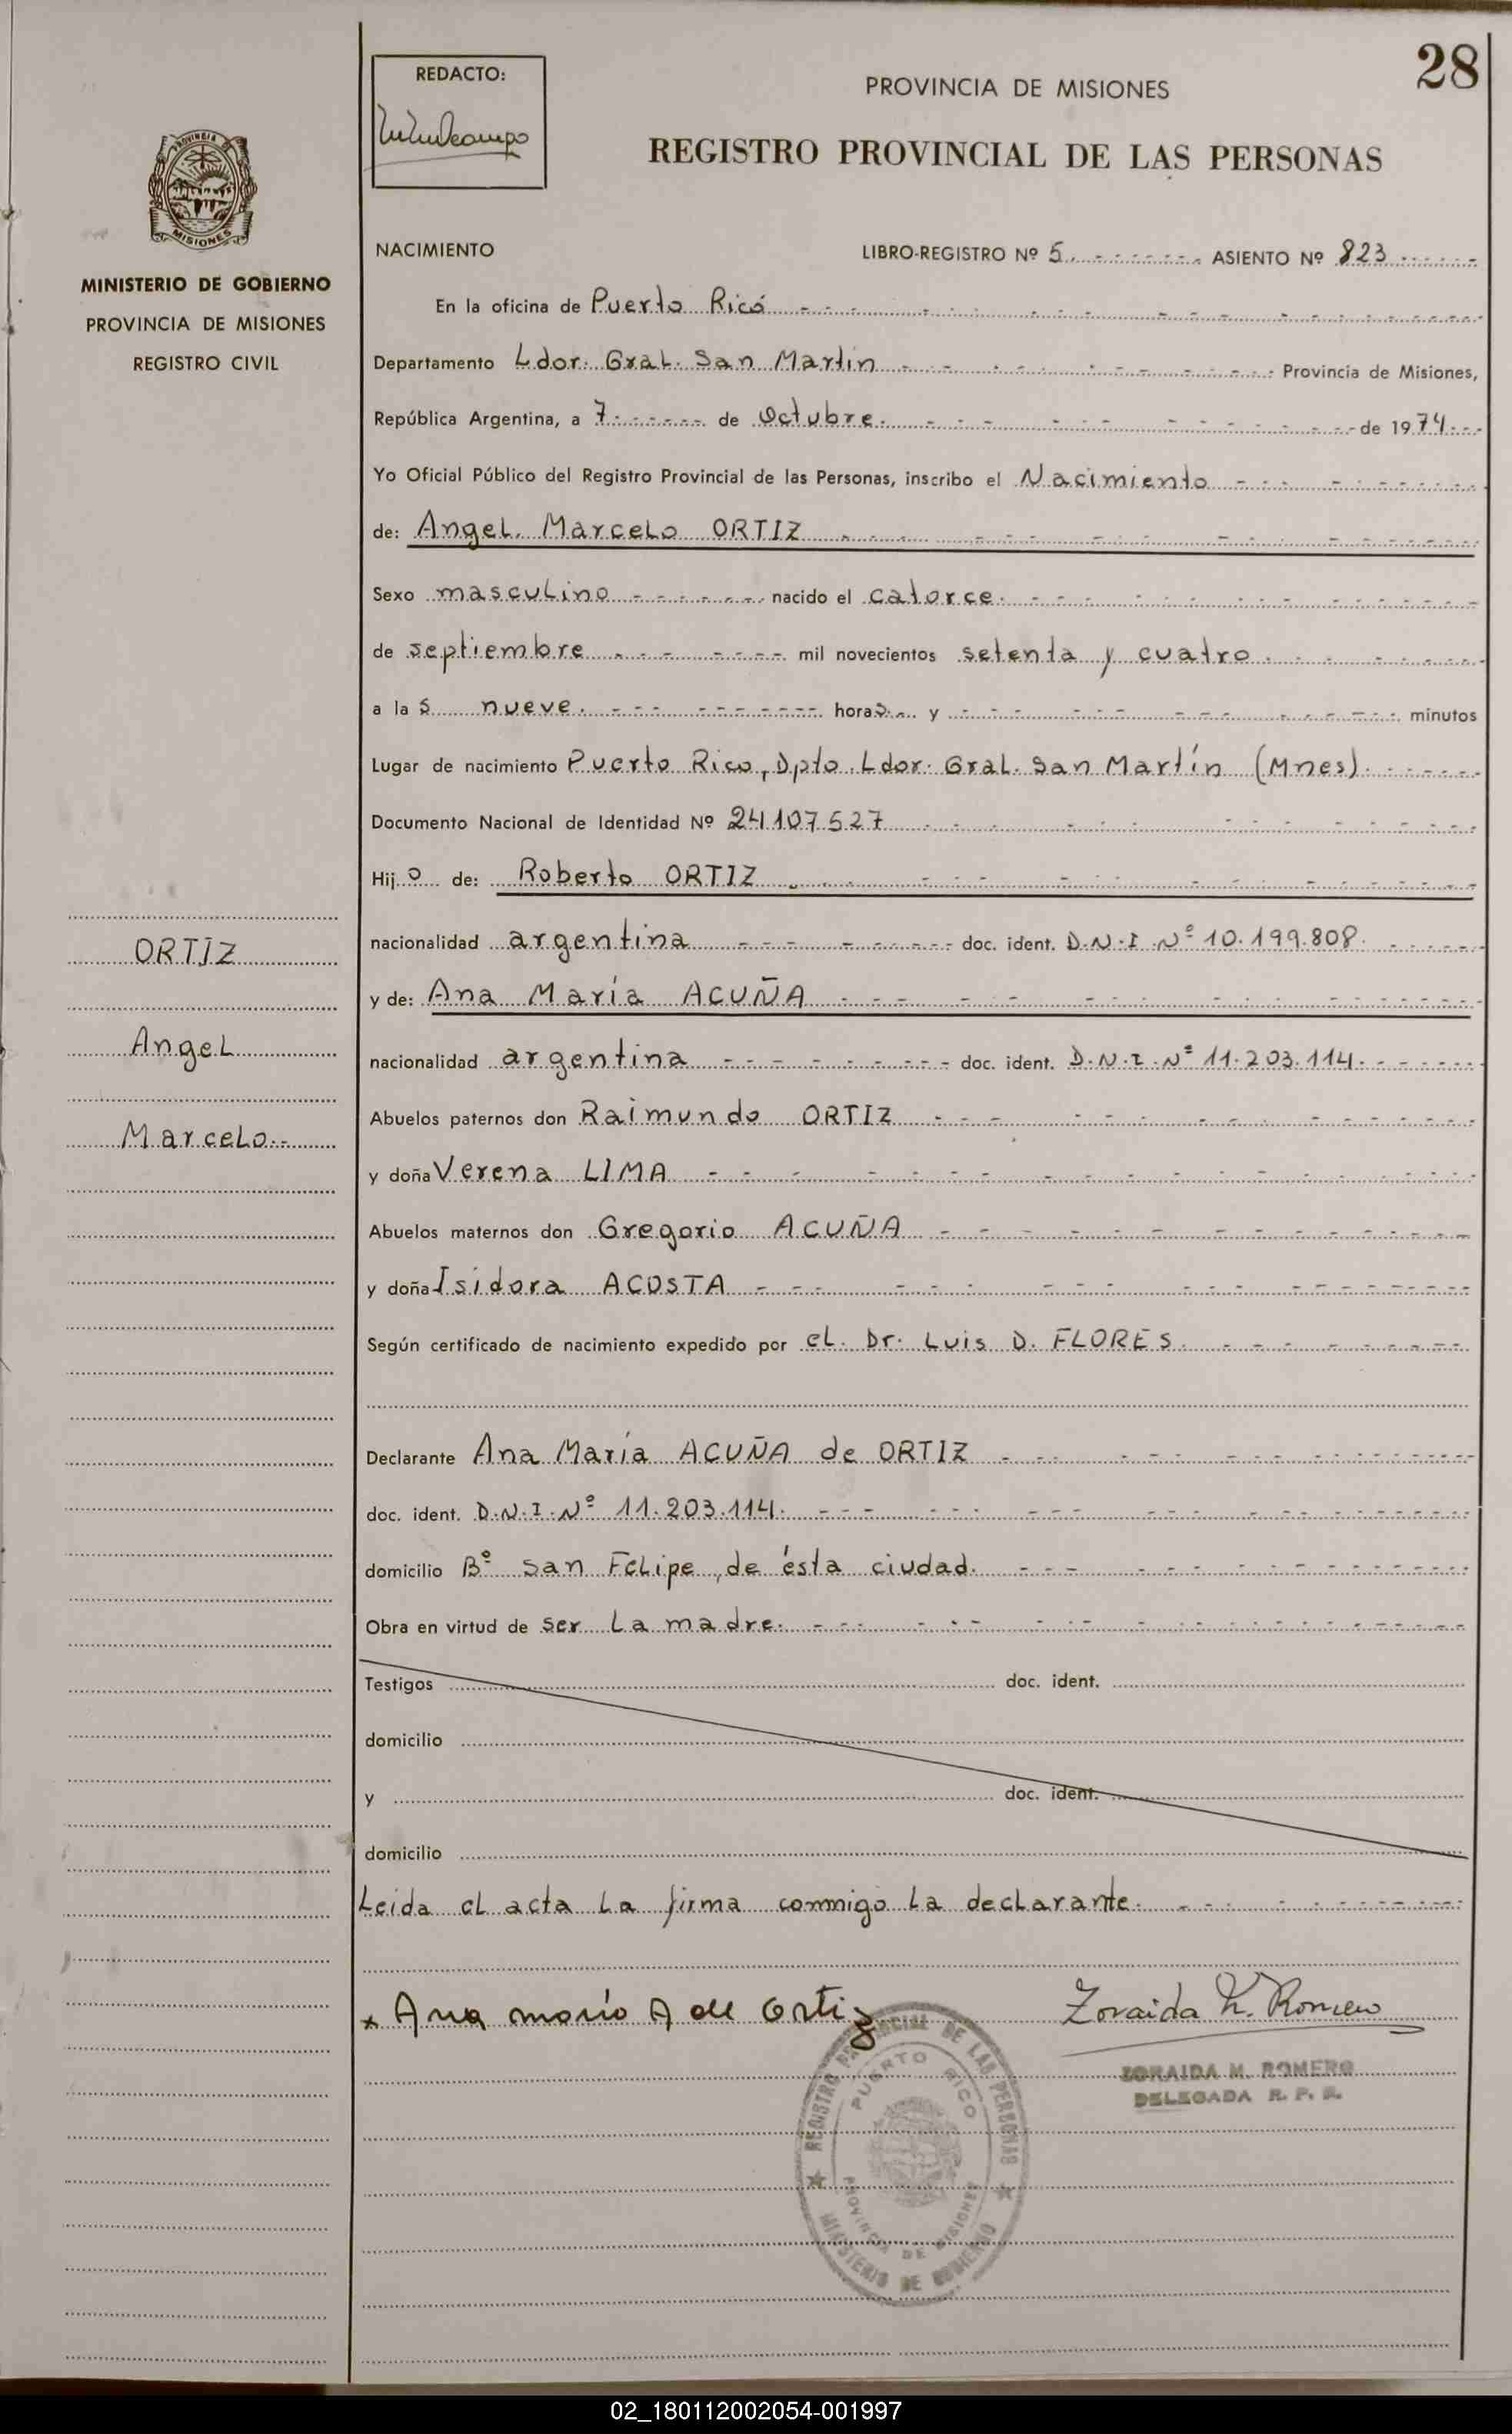 28
REDACTO:
PROVINCIA DE MISIONES
REGISTRO PROVINCIAL DE LAS PERSONAS
PROVINCIA DE
MISIONES
MINISTERIO DE GOBIERNO
PROVINCIA DE MISIONES
REGISTRO CIVIL
NACIMIENTO LIBRO-REGISTRO Nº 5. ASIENTO Nº 823
En la oficina de Puerto Ricó
Departamento Ldor. Gral. San Martin Provincia de Misiones,
República Argentina, a 7 de Octubre. de 1974
Yo Oficial Público del Registro Provincial de las Personas, inscribo el Nacimiento
de: Angel Marcelo ORTIZ
Sexo masculino nacido el catorce.
de septiembre mil novecientos setenta y cuatro
a las nueve. horas y minutos
Lugar de nacimiento Puerto Rico, Dpto. Ldor. Gral. San Martín (Mnes).
Documento Nacional de Identidad Nº 24107527
Hijo de: Roberto ORTIZ
nacionalidad argentina doc. ident. D.N.I. Nº 10.199.808.
y de: Ana María ACUÑA
nacionalidad argentina doc. ident. D.N.I. Nº 11.203.114.
Abuelos paternos don Raimundo ORTIZ
y doña Verena LIMA
Abuelos maternos don Gregorio ACUÑA
y doña Isidora ACOSTA
Según certificado de nacimiento expedido por el Dr. Luis D. FLORES.
Declarante Ana María ACUÑA de ORTIZ
doc. ident. D.N.I. Nº 11.203.114.
domicilio Bº San Felipe, de ésta ciudad.
Obra en virtud de ser la madre.
Testigos doc. ident.
domicilio
y doc. ident.
domicilio
Leida el acta la firma conmigo la declarante.
ORTIZ
Angel
Marcelo
x Ana maría A de Ortiz
Zoraida M. Romero
ZORAIDA M. ROMERO
DELEGADA R. P. P.
REGISTRO PROVINCIAL DE LAS PERSONAS
PUERTO RICO
PROVINCIA DE MISIONES
MINISTERIO DE GOBIERNO
02_180112002054-001997